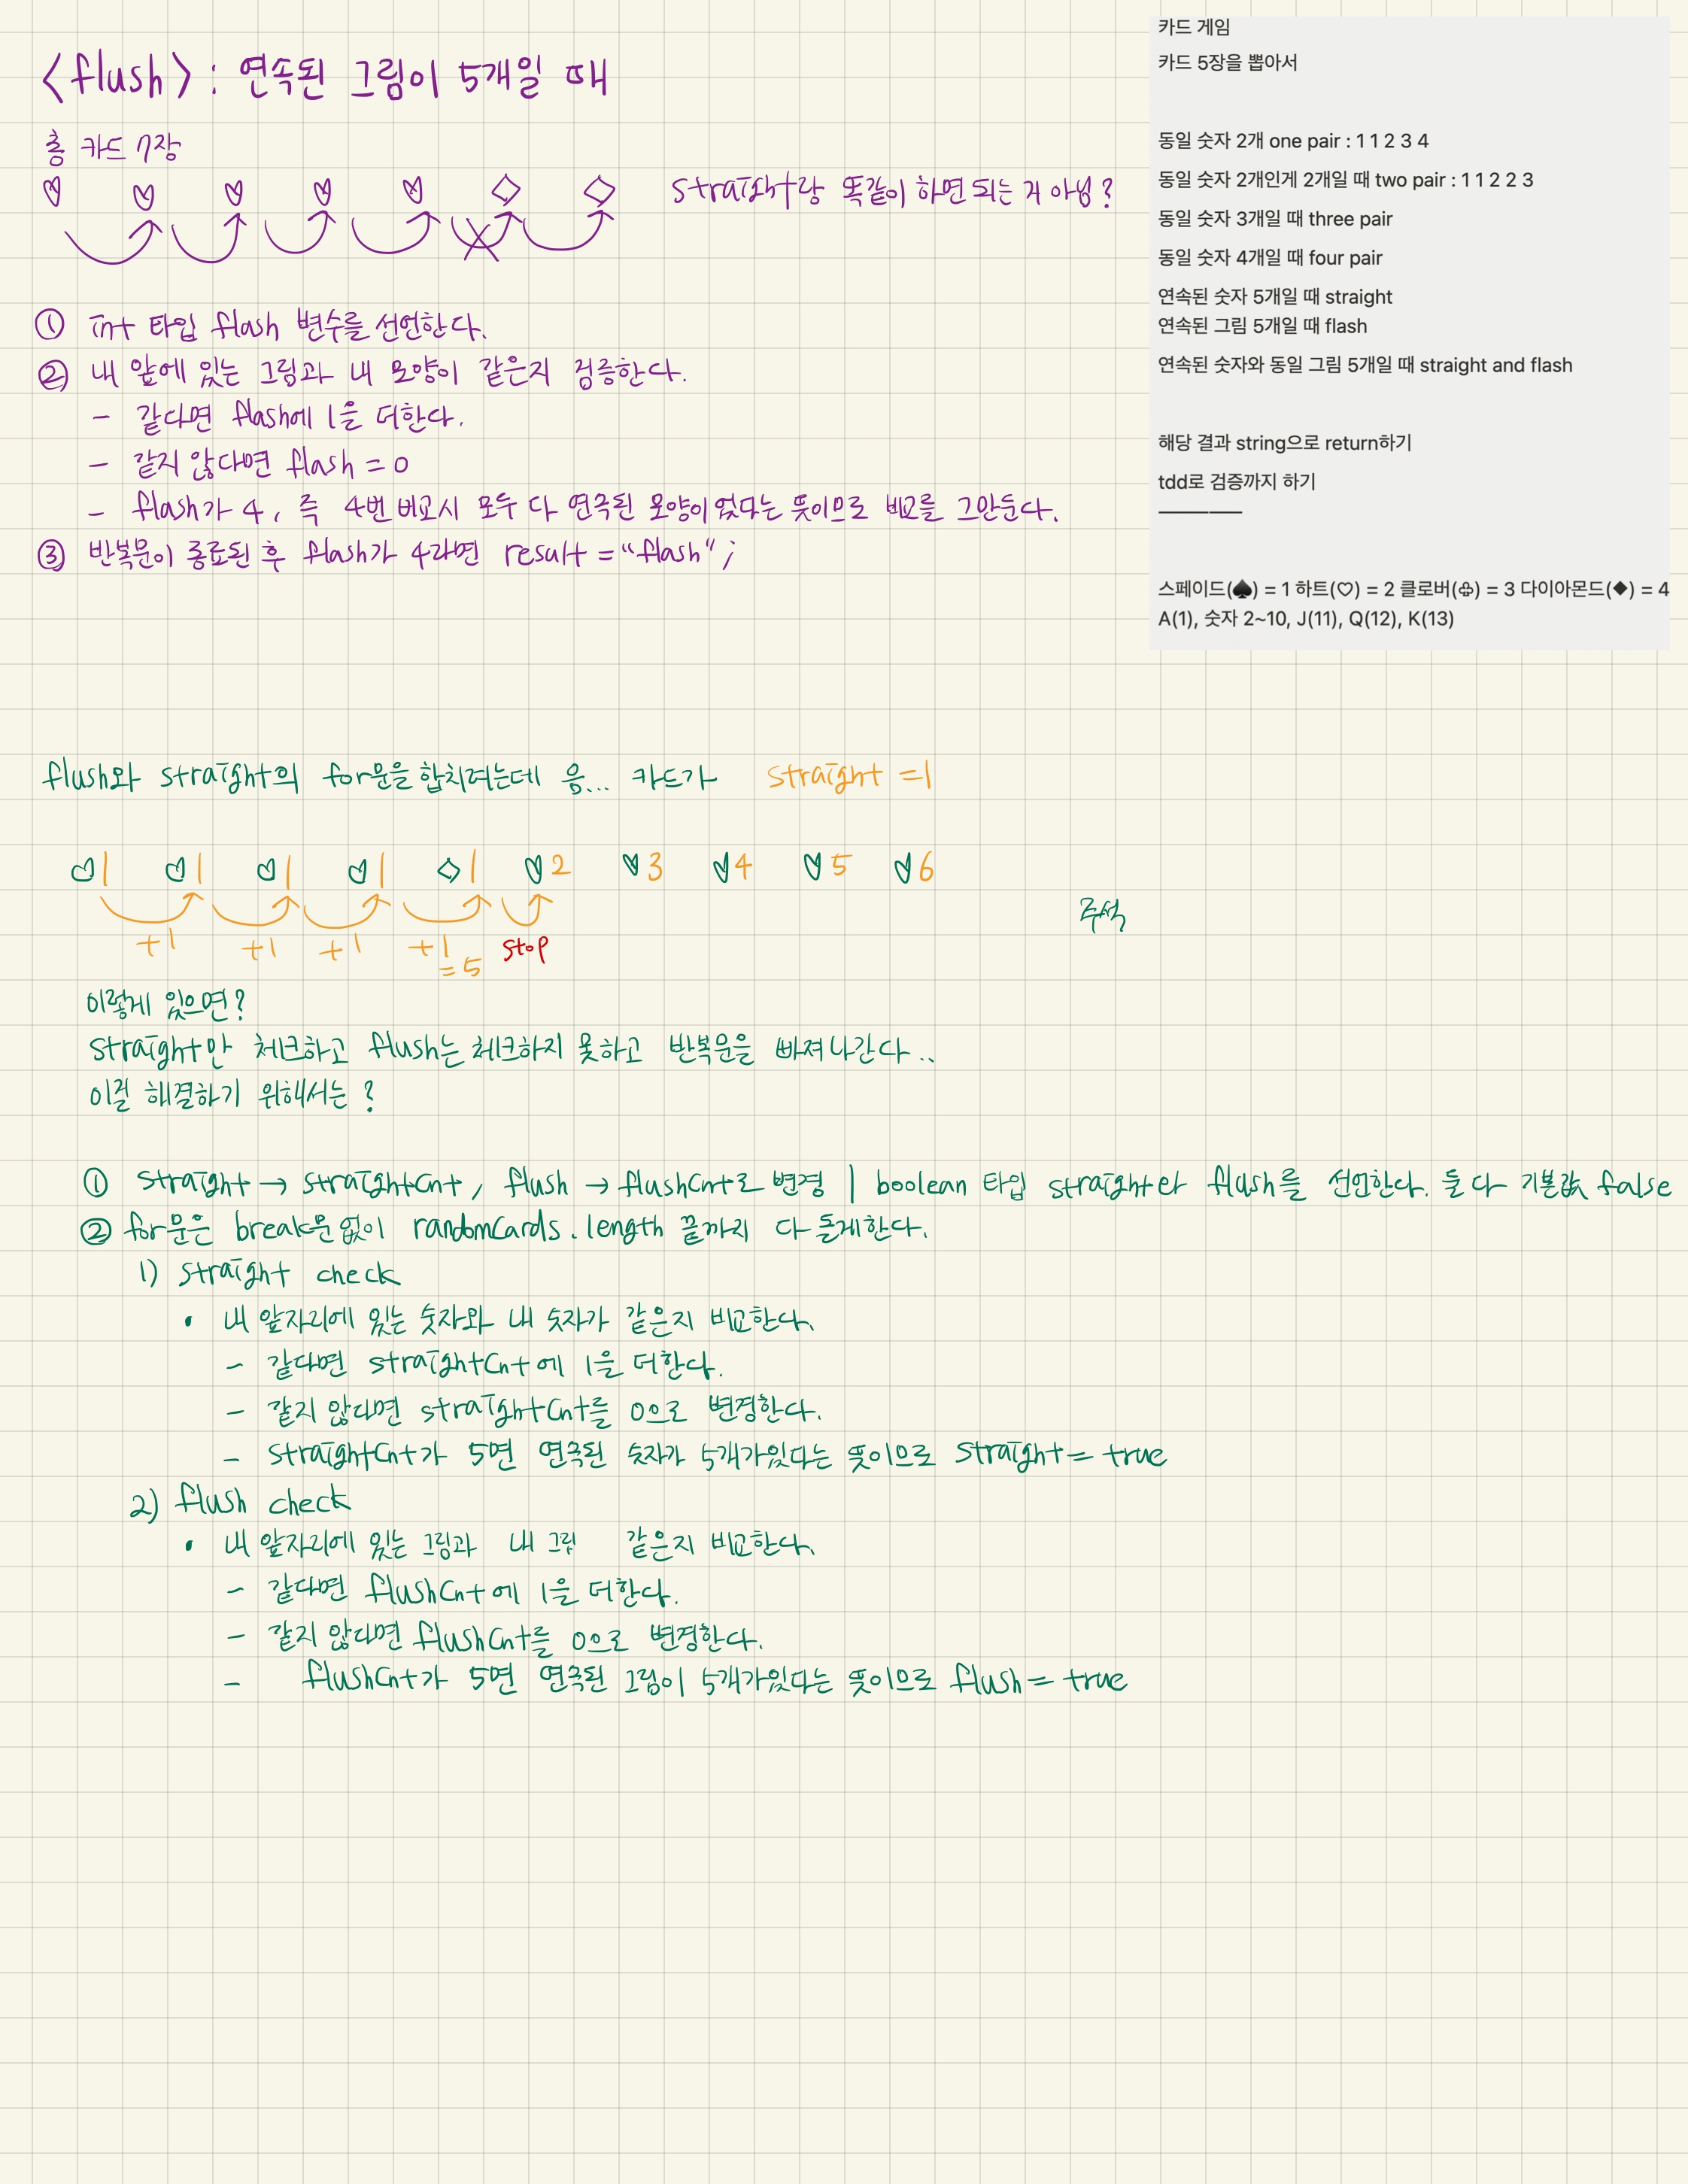 <flush> : 연속된 그림이 5개일 때
총 카드 7장
♡ ♡ ♡ ♡ ♡ ◇ ◇ straight랑 똑같이 하면 되는 거 아님?
① int 타입 flash 변수를 선언한다.
② 내 앞에 있는 그림과 내 모양이 같은지 검증한다.
- 같다면 flash에 1을 더한다.
- 같지 않다면 flash = 0
- flash가 4, 즉 4번 비교시 모두 다 연속된 모양이었다는 뜻이므로 비교를 그만둔다.
③ 반복문이 종료된 후 flash가 4라면 result = "flash";
카드 게임
카드 5장을 뽑아서
동일 숫자 2개 one pair : 1 1 2 3 4
동일 숫자 2개인게 2개일 때 two pair : 1 1 2 2 3
동일 숫자 3개일 때 three pair
동일 숫자 4개일 때 four pair
연속된 숫자 5개일 때 straight
연속된 그림 5개일 때 flash
연속된 숫자와 동일 그림 5개일 때 straight and flash
해당 결과 string으로 return하기
tdd로 검증까지 하기
————
스페이드(♠) = 1 하트(♡) = 2 클로버(♧) = 3 다이아몬드(◆) = 4
A(1), 숫자 2~10, J(11), Q(12), K(13)
flush와 straight의 for문을 합치려는데 음... 카드가 straight = 1
♡1 ♡1 ♡1 ♡1 ◇1 ♡2 ♡3 ♡4 ♡5 ♡6
주석
+1 +1 +1 +1 stop
= 5
이렇게 있으면?
straight만 체크하고 flush는 체크하지 못하고 반복문을 빠져나간다..
이걸 해결하기 위해서는?
① straight → straightCnt, flush → flushCnt로 변경 | boolean 타입 straight와 flush를 선언한다. 둘 다 기본값 false
② for문은 break문 없이 randomCards.length 끝까지 다 돌게한다.
1) straight check
• 내 앞자리에 있는 숫자와 내 숫자가 같은지 비교한다.
- 같다면 straightCnt에 1을 더한다.
- 같지 않다면 straightCnt를 0으로 변경한다.
- straightCnt가 5면 연속된 숫자가 5개가있다는 뜻이므로 straight = true
2) flush check
• 내 앞자리에 있는 그림과 내 그림 같은지 비교한다.
- 같다면 flushCnt에 1을 더한다.
- 같지 않다면 flushCnt를 0으로 변경한다.
- flushCnt가 5면 연속된 그림이 5개가있다는 뜻이므로 flush = true